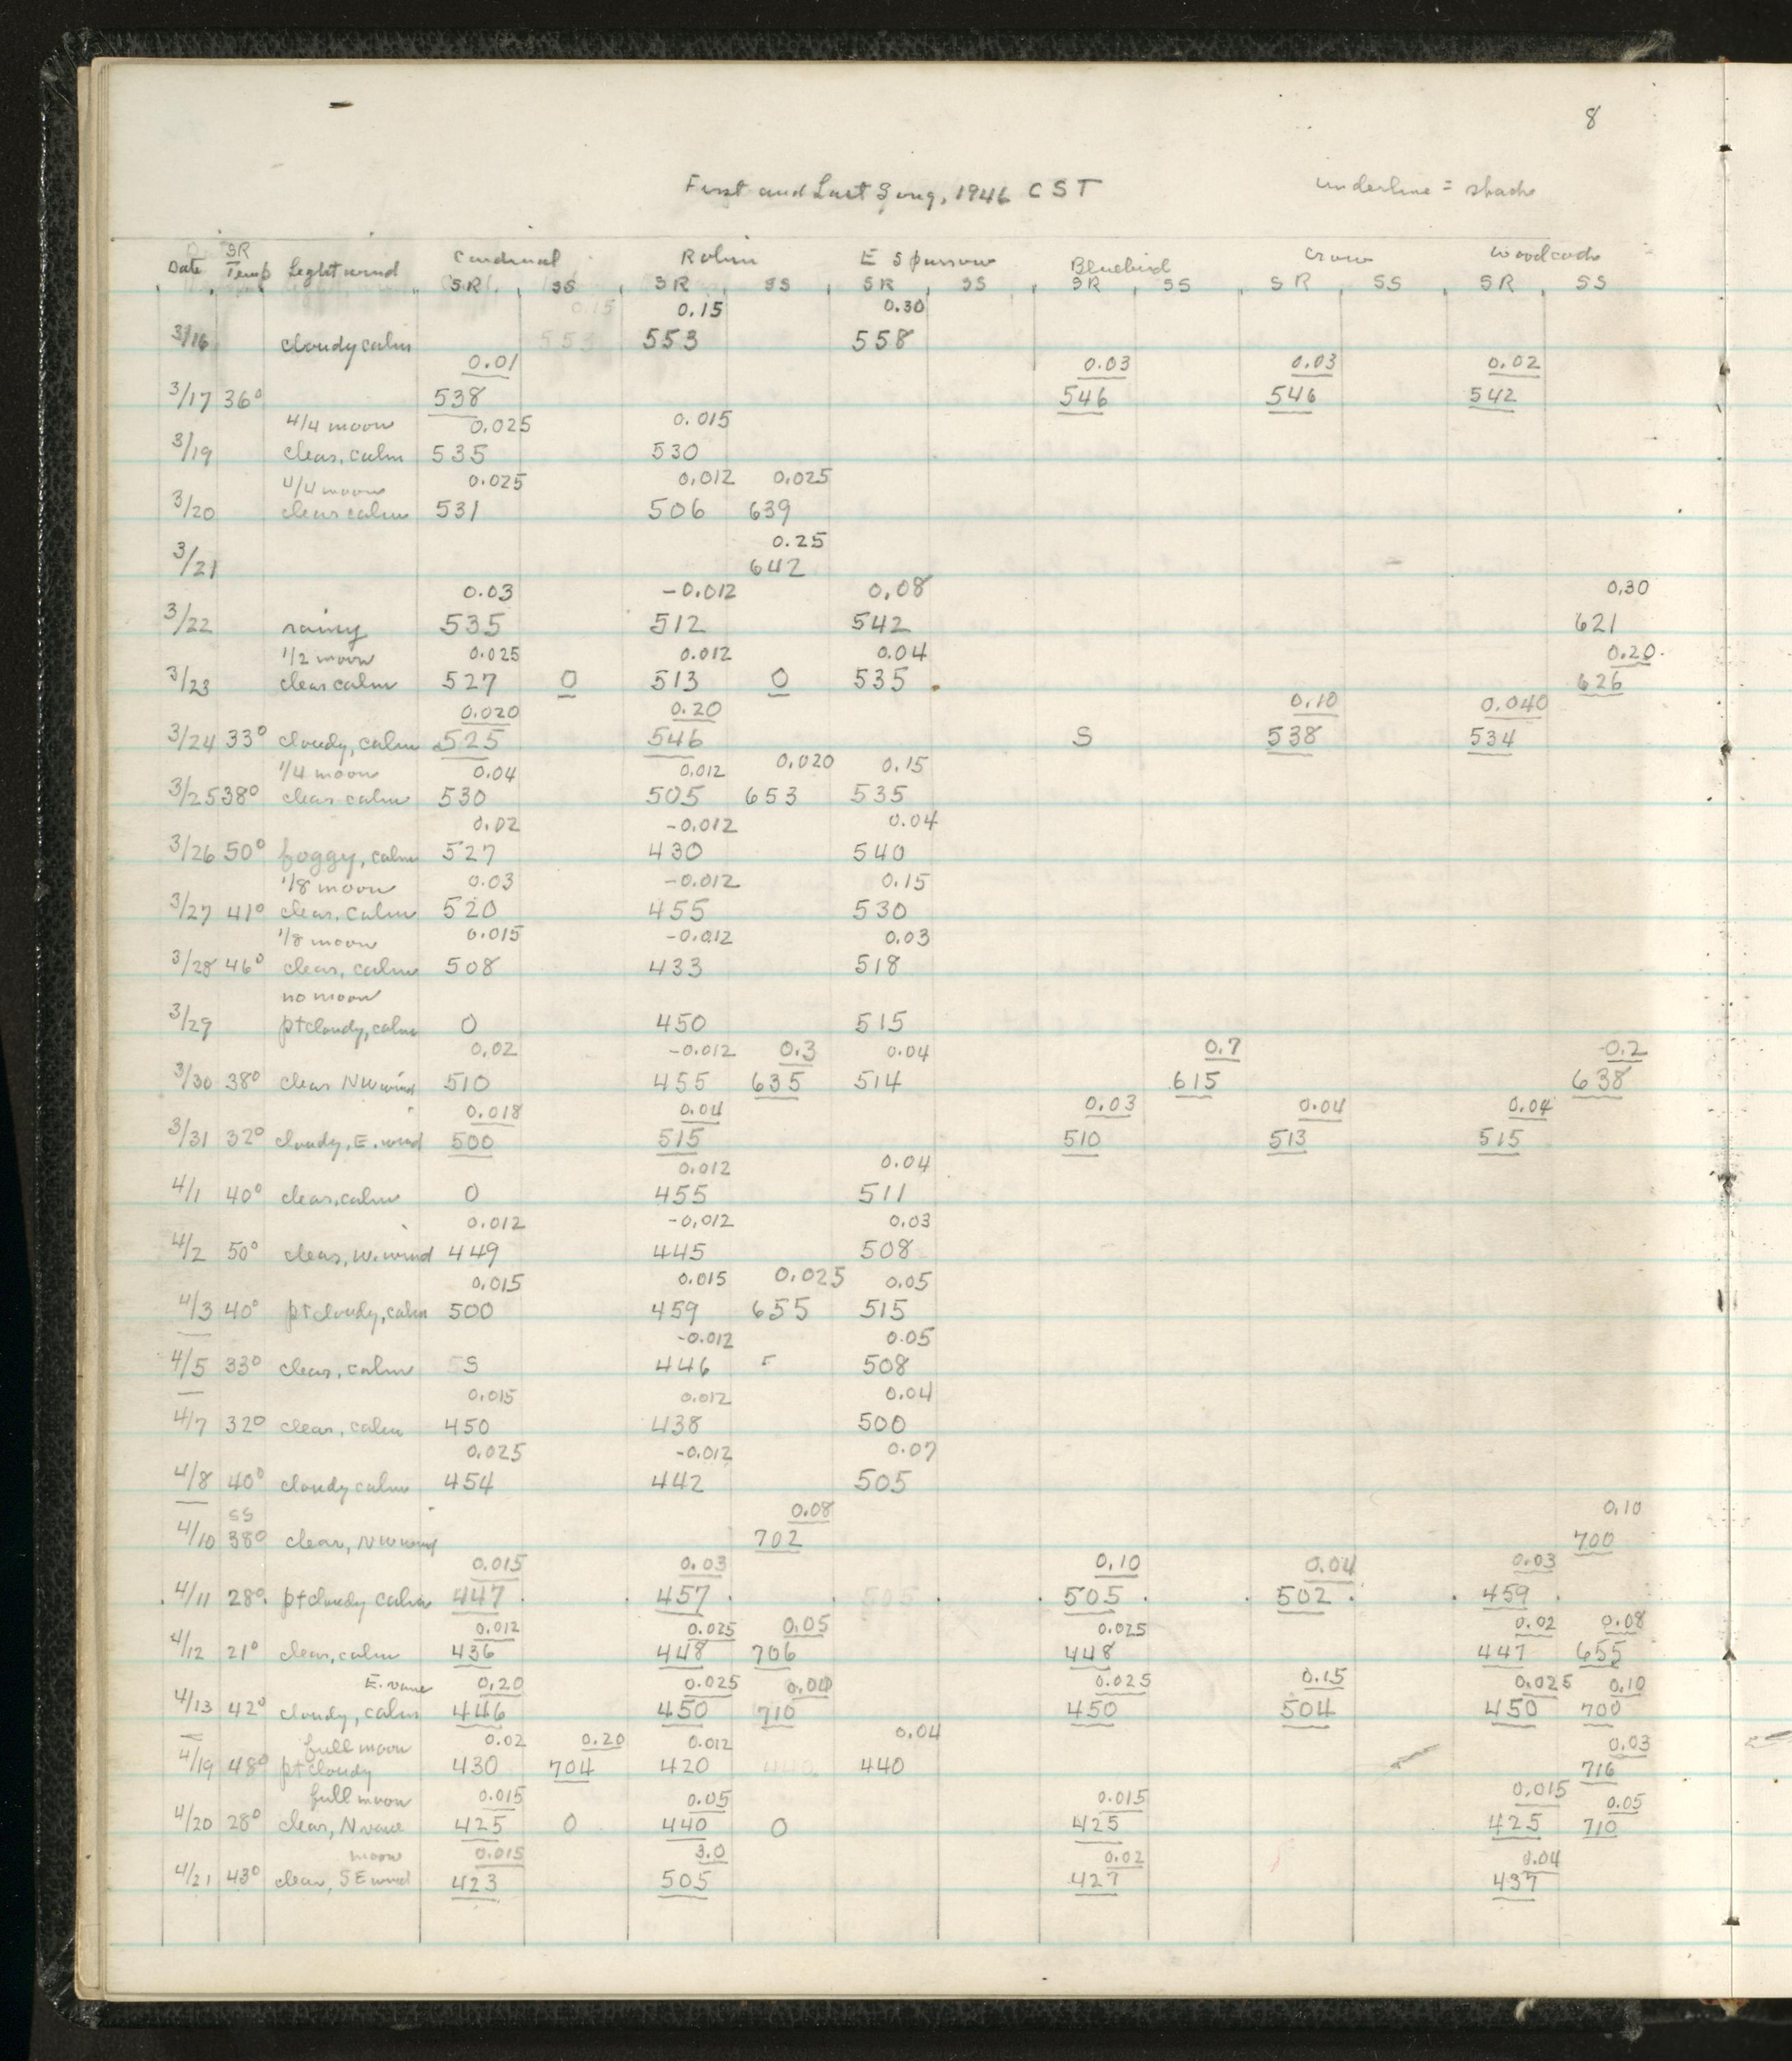 8
First and Last Song, 1946 CST underline = shack
SR Cardinal Robin E Sparrow Bluebird Crow Woodcock
Date Temp Light wind SR SS SR SS SR SS SR SS SR SS SR SS
0.15 0.30
3/16 cloudy calm 553 558
0.01 0.03 0.03 0.02
3/17 36° 538 546 546 542
4/4 moon 0.025 0.015
3/19 clear, calm 535 530
4/4 moon 0.025 0.012 0.025
3/20 clear calm 531 506 639
0.25
3/21 642
0.03 -0.012 0.08 0.30
3/22 rainy 535 512 542 621
1/2 moon 0.025 0.012 0.04 0.20
3/23 clear calm 527 0 513 0 535 626
0.020 0.20 0.10 0.040
3/24 33° cloudy, calm 525 546 S 538 534
1/4 moon 0.04 0.012 0.020 0.15
3/25 38° clear calm 530 505 653 535
0.02 -0.012 0.04
3/26 50° foggy, calm 527 430 540
1/8 moon 0.03 -0.012 0.15
3/27 41° clear, calm 520 455 530
1/8 moon 0.015 -0.012 0.03
3/28 46° clear, calm 508 433 518
no moon
3/29 pt cloudy, calm 0 450 515
0.02 -0.012 0.3 0.04 0.7 0.2
3/30 38° clear NW wind 510 455 635 514 615 638
0.018 0.04 0.03 0.04 0.04
3/31 32° cloudy, E. wind 500 515 510 513 515
0.012 0.04
4/1 40° clear, calm 0 455 511
0.012 -0.012 0.03
4/2 50° clear, W. wind 449 445 508
0.015 0.015 0.025 0.05
4/3 40° pt cloudy, calm 500 459 655 515
-0.012 0.05
4/5 33° clear, calm S 446 508
0.015 0.012 0.04
4/7 32° clear, calm 450 438 500
0.025 -0.012 0.07
4/8 40° cloudy calm 454 442 505
SS 0.08 0.10
4/10 38° clear, NW wind 702 700
0.015 0.03 0.10 0.04 0.03
4/11 28° pt cloudy calm 447 457 505 502 459
0.012 0.025 0.05 0.025 0.02 0.08
4/12 21° clear, calm 436 448 706 448 447 655
E. vane 0.20 0.025 0.025 0.15 0.025 0.10
4/13 42° cloudy, calm 446 450 710 450 504 450 700
full moon 0.02 0.20 0.012 0.04 0.03
4/19 48° pt cloudy 430 704 420 440 716
full moon 0.015 0.05 0.015 0.015 0.05
4/20 28° clear, N vane 425 0 440 0 425 425 710
moon 0.015 3.0 0.02 0.04
4/21 43° clear, SE wind 423 505 427 437